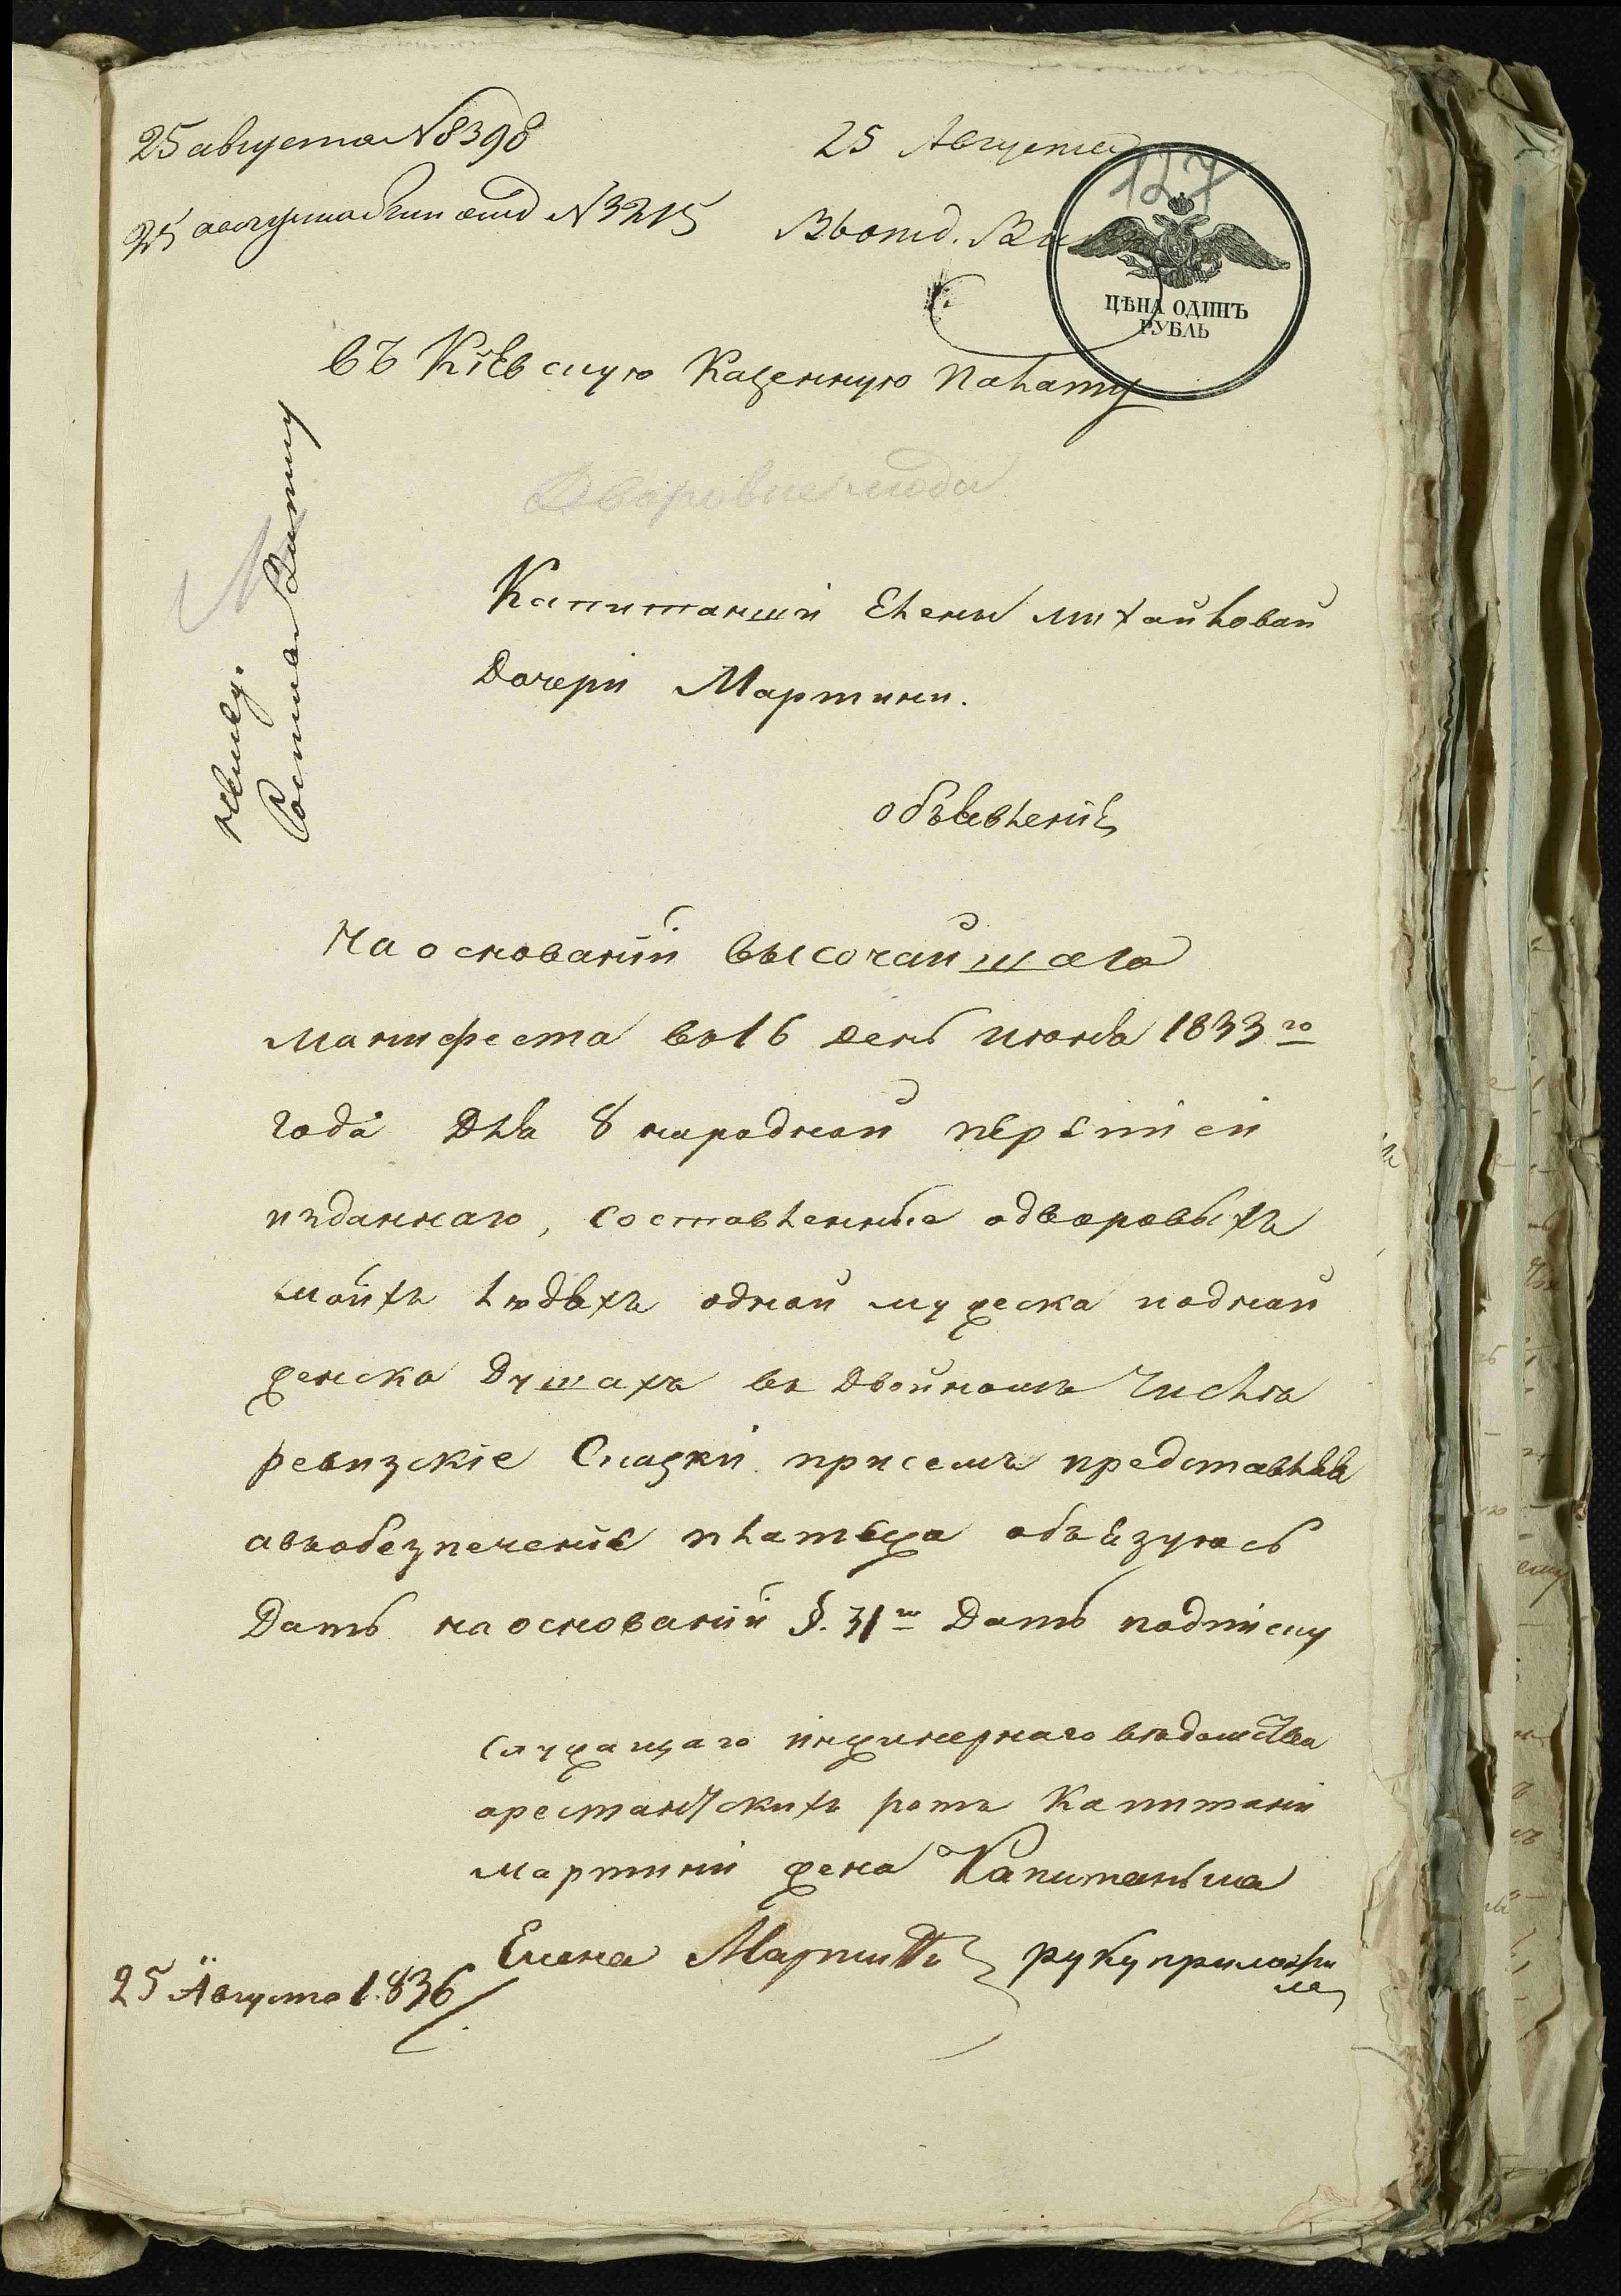 25 августа №8398
25 августа отд №3215
25 Августа
127
ЦѢНА ОДИНЪ
РУБЛЬ
въ Кіевскую Казенную Палату
Дворовые люди
Капитанши Елены михайловой
Дочери Мартини.
объявленіе
На основаній высочайшаго
манифеста въ 16 день июня 1833го
года для 8 народной переписи
изданнаго, составленные одворовыхъ
моихъ людяхъ одной мужеска иодной
женска душахъ въ двойномъ числѣ
ревизскіе Сказки присемъ представляя
авъобезпеченіе платежа объязуюсь
Дать на основаній §. 31го Дать подписку
служащаго инжинернаго вѣдомства
арестантскихъ ротъ Капитана
мартини жена Капитанша
Елена Мартини руку приложи
ла
25 Августа 1836